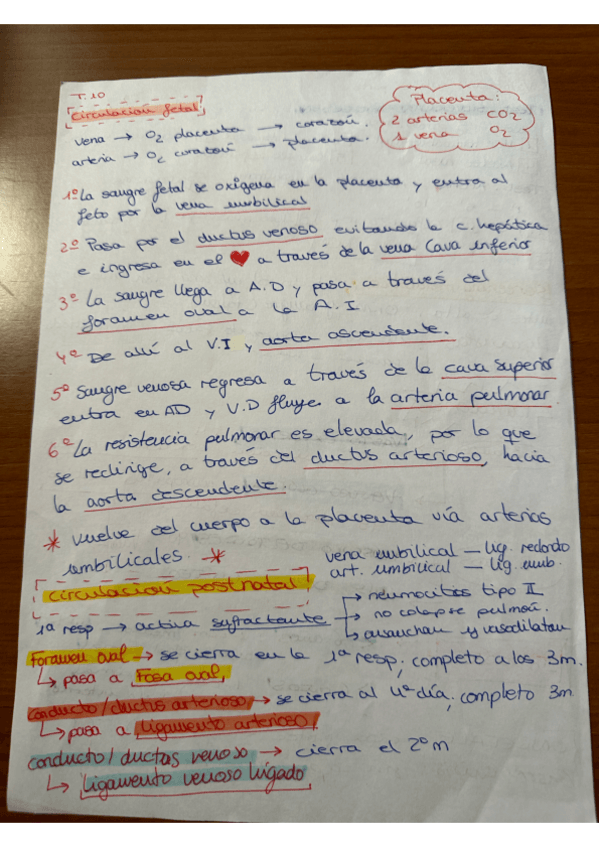 T.10
circulación fetal
Placenta:
2 arterias CO2
1 vena O2
vena → O2 placenta → corazón.
arteria → O2 corazón → placenta.
1º La sangre fetal se oxigena en la placenta y entra al
feto por la vena umbilical
2º Pasa por el ductus venoso evitando la c. hepática
e ingresa en el ❤ a través de la vena Cava inferior
3º La sangre llega a A.D y pasa a través del
foramen oval a la A.I
4º De allí al V.I y aorta ascendente.
5º Sangre venosa regresa a través de la cava superior
entra en AD y V.D fluye a la arteria pulmonar
6º La resistencia pulmonar es elevada, por lo que
se redirige, a través del ductus arterioso, hacia
la aorta descendente.
* vuelve del cuerpo a la placenta vía arterias
umbilicales. *
vena umbilical — lig. redondo
art. umbilical — lig. umb.
circulación postnatal
→ neumocitos tipo II
1ª resp → activa surfactante → no colapse pulmón.
→ ensanchan y vasodilatan
Foramen oval → se cierra en la 1ª resp; completo a los 3m.
↳ pasa a fosa oval.
conducto/ductus arterioso → se cierra al 4º día; completo 3m
↳ pasa a ligamento arterioso.
conducto/ductus venoso → cierra el 2º m
↳ ligamento venoso hígado